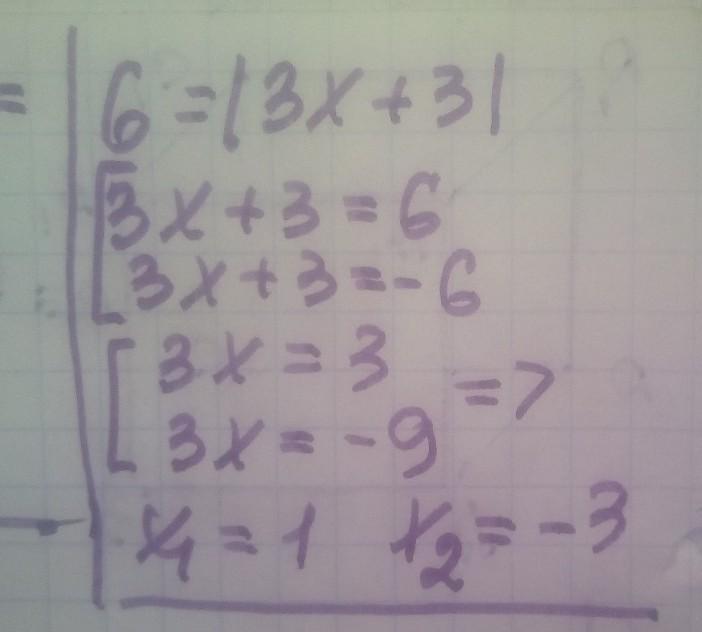 =
6 = |3x + 3|
[3x + 3 = 6
3x + 3 = - 6
[3x = 3
3x = - 9 =>
x₁ = 1 x₂ = - 3